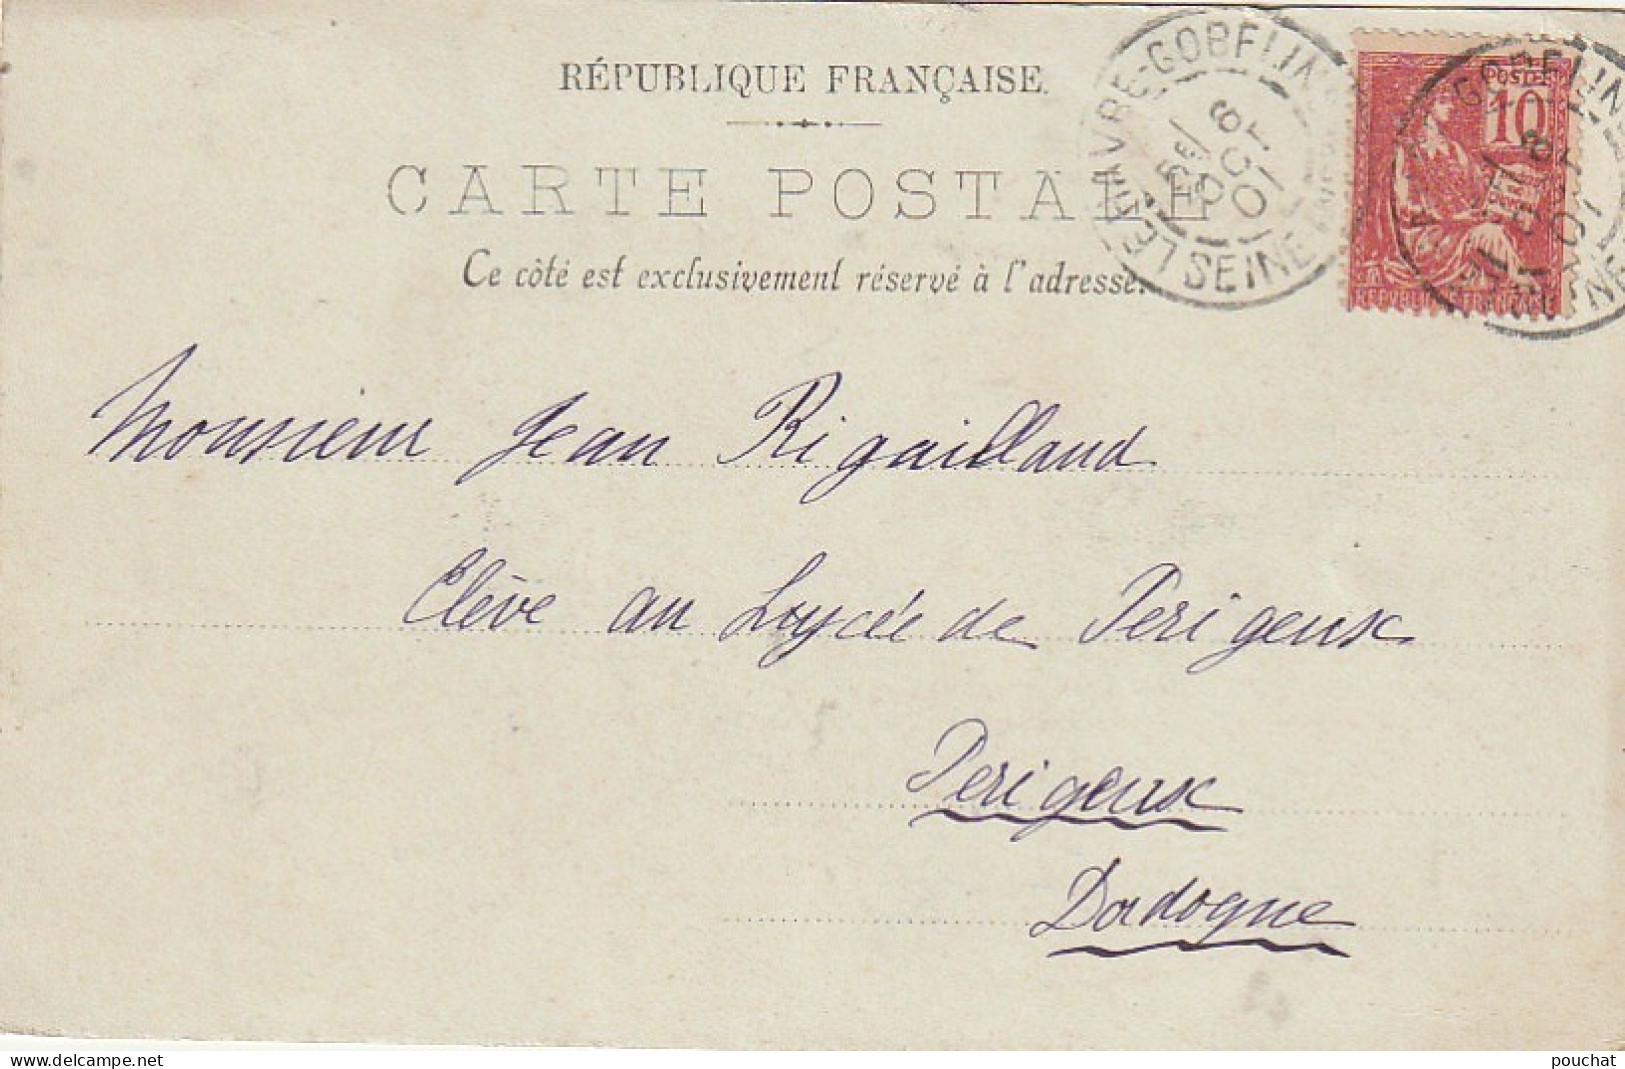 RÉPUBLIQUE FRANÇAISE
CARTE POSTALE
Ce côté est exclusivement réservé à l'adresse.
LE HAVRE-GOBELINS
6 OCT 01
SEINE INFRE
POSTES
10
REPUBLIQUE FRANÇAISE
Monsieur Jean Rigailland
Elève au Lycée de Perigeux
Perigeux
Dordogne
www.delcampe.net
pouchat